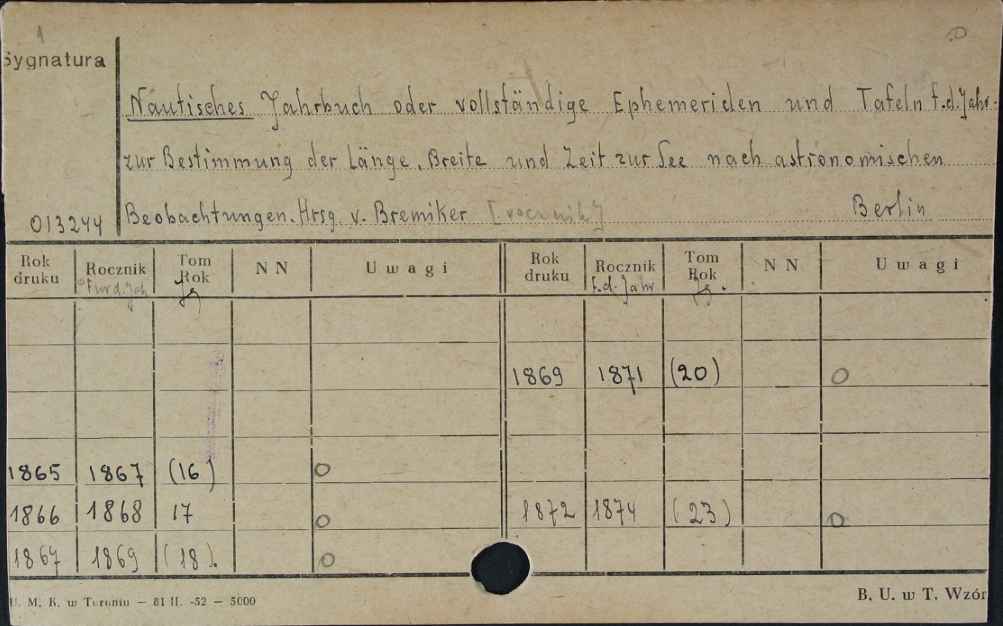 1
Sygnatura
Nautisches Jahrbuch oder vollständige Ephemeriden und Tafeln f.d.Jahr
zur Bestimmung der Länge, Breite und Zeit zur See nach astronomischen
013244 Beobachtungen. Hrsg. v. Bremiker [rocznik] Berlin
Rok druku Rocznik Tom Rok NN Uwagi Rok druku Rocznik Tom Rok NN Uwagi
Für d. Jah Jg f.d. Jahr Jg.
1869 1871 (20) O
1865 1867 (16) O
1866 1868 17 O 1872 1874 (23) O
1867 1869 (18). O
U. M. K. w Toruniu — 81 II. -52 — 5000 B. U. w T. Wzór